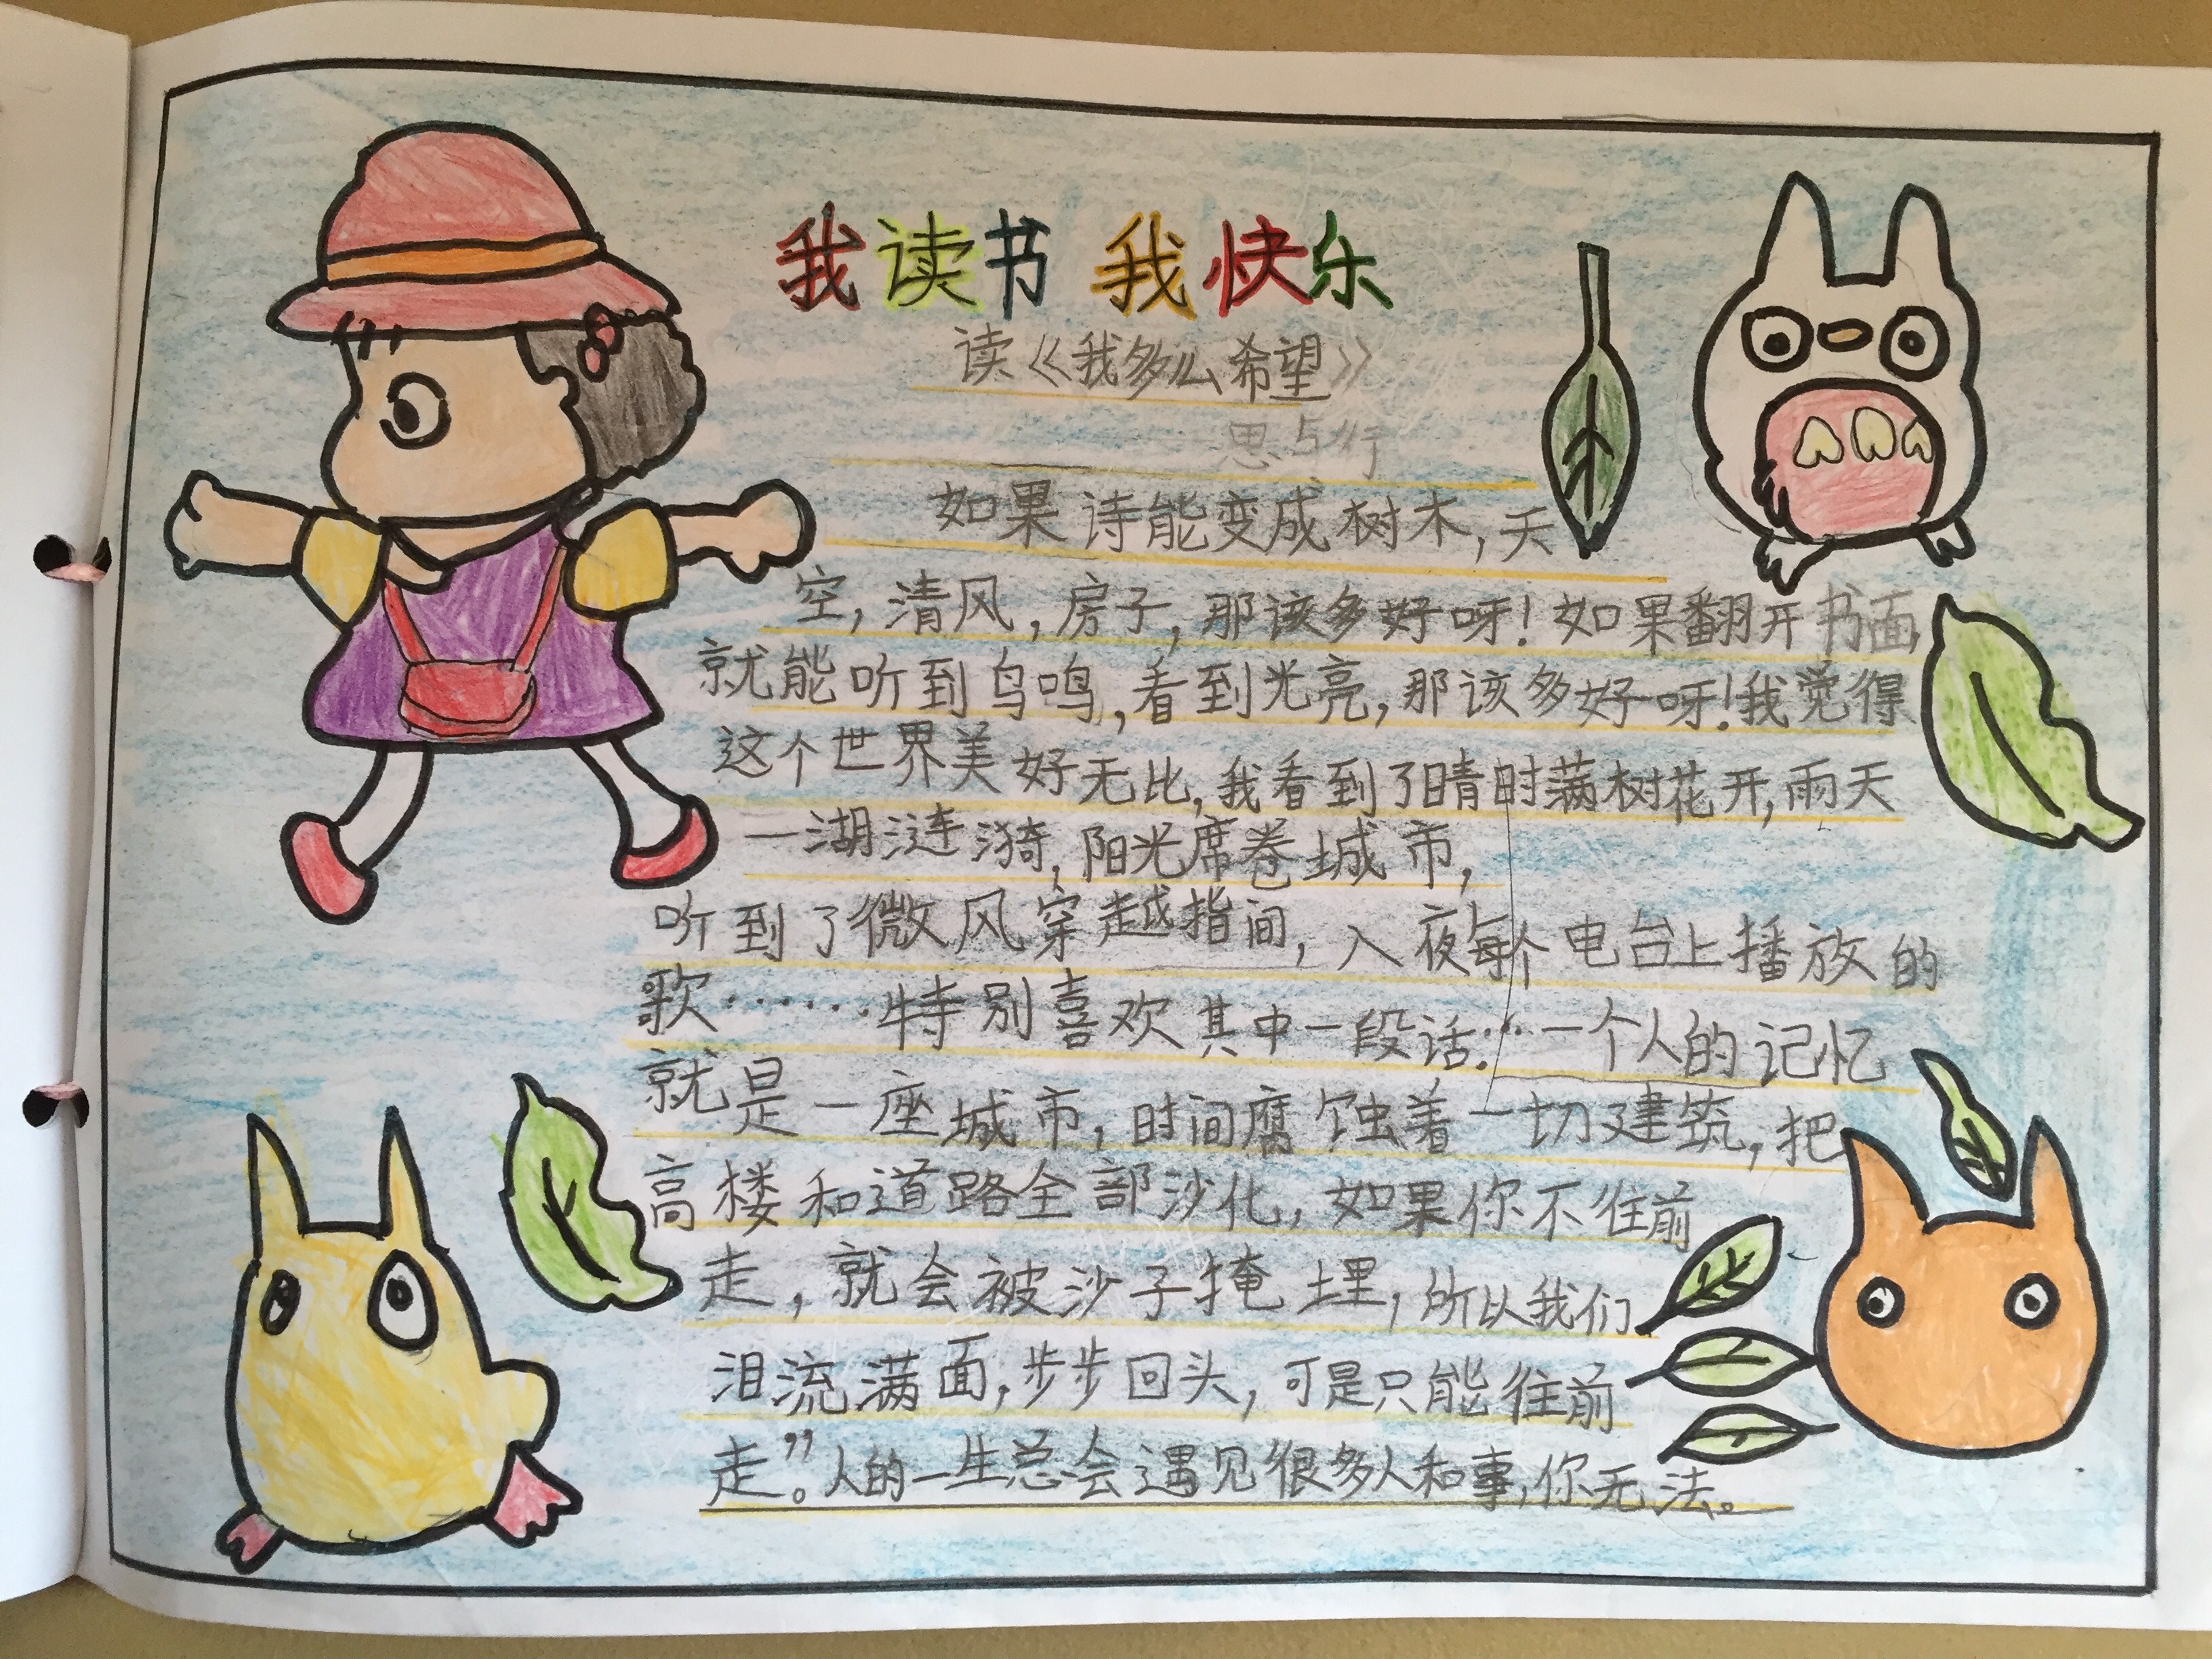 我读书 我快乐
读《我多么希望》
思与行
如果诗能变成树木,天
空,清风,房子,那该多好呀!如果翻开书面,
就能听到鸟鸣,看到光亮,那该多好呀!我觉得
这个世界美好无比,我看到了晴时满树花开,雨天
一湖涟漪,阳光席卷城市,
听到了微风穿越指间,入夜每个电台上播放的
歌……特别喜欢其中一段话:“一个人的记忆
就是一座城市,时间腐蚀着一切建筑,把
高楼和道路全部沙化,如果你不往前
走,就会被沙子掩埋,所以我们
泪流满面,步步回头,可是只能往前
走”。人的一生总会遇见很多人和事,你无法。